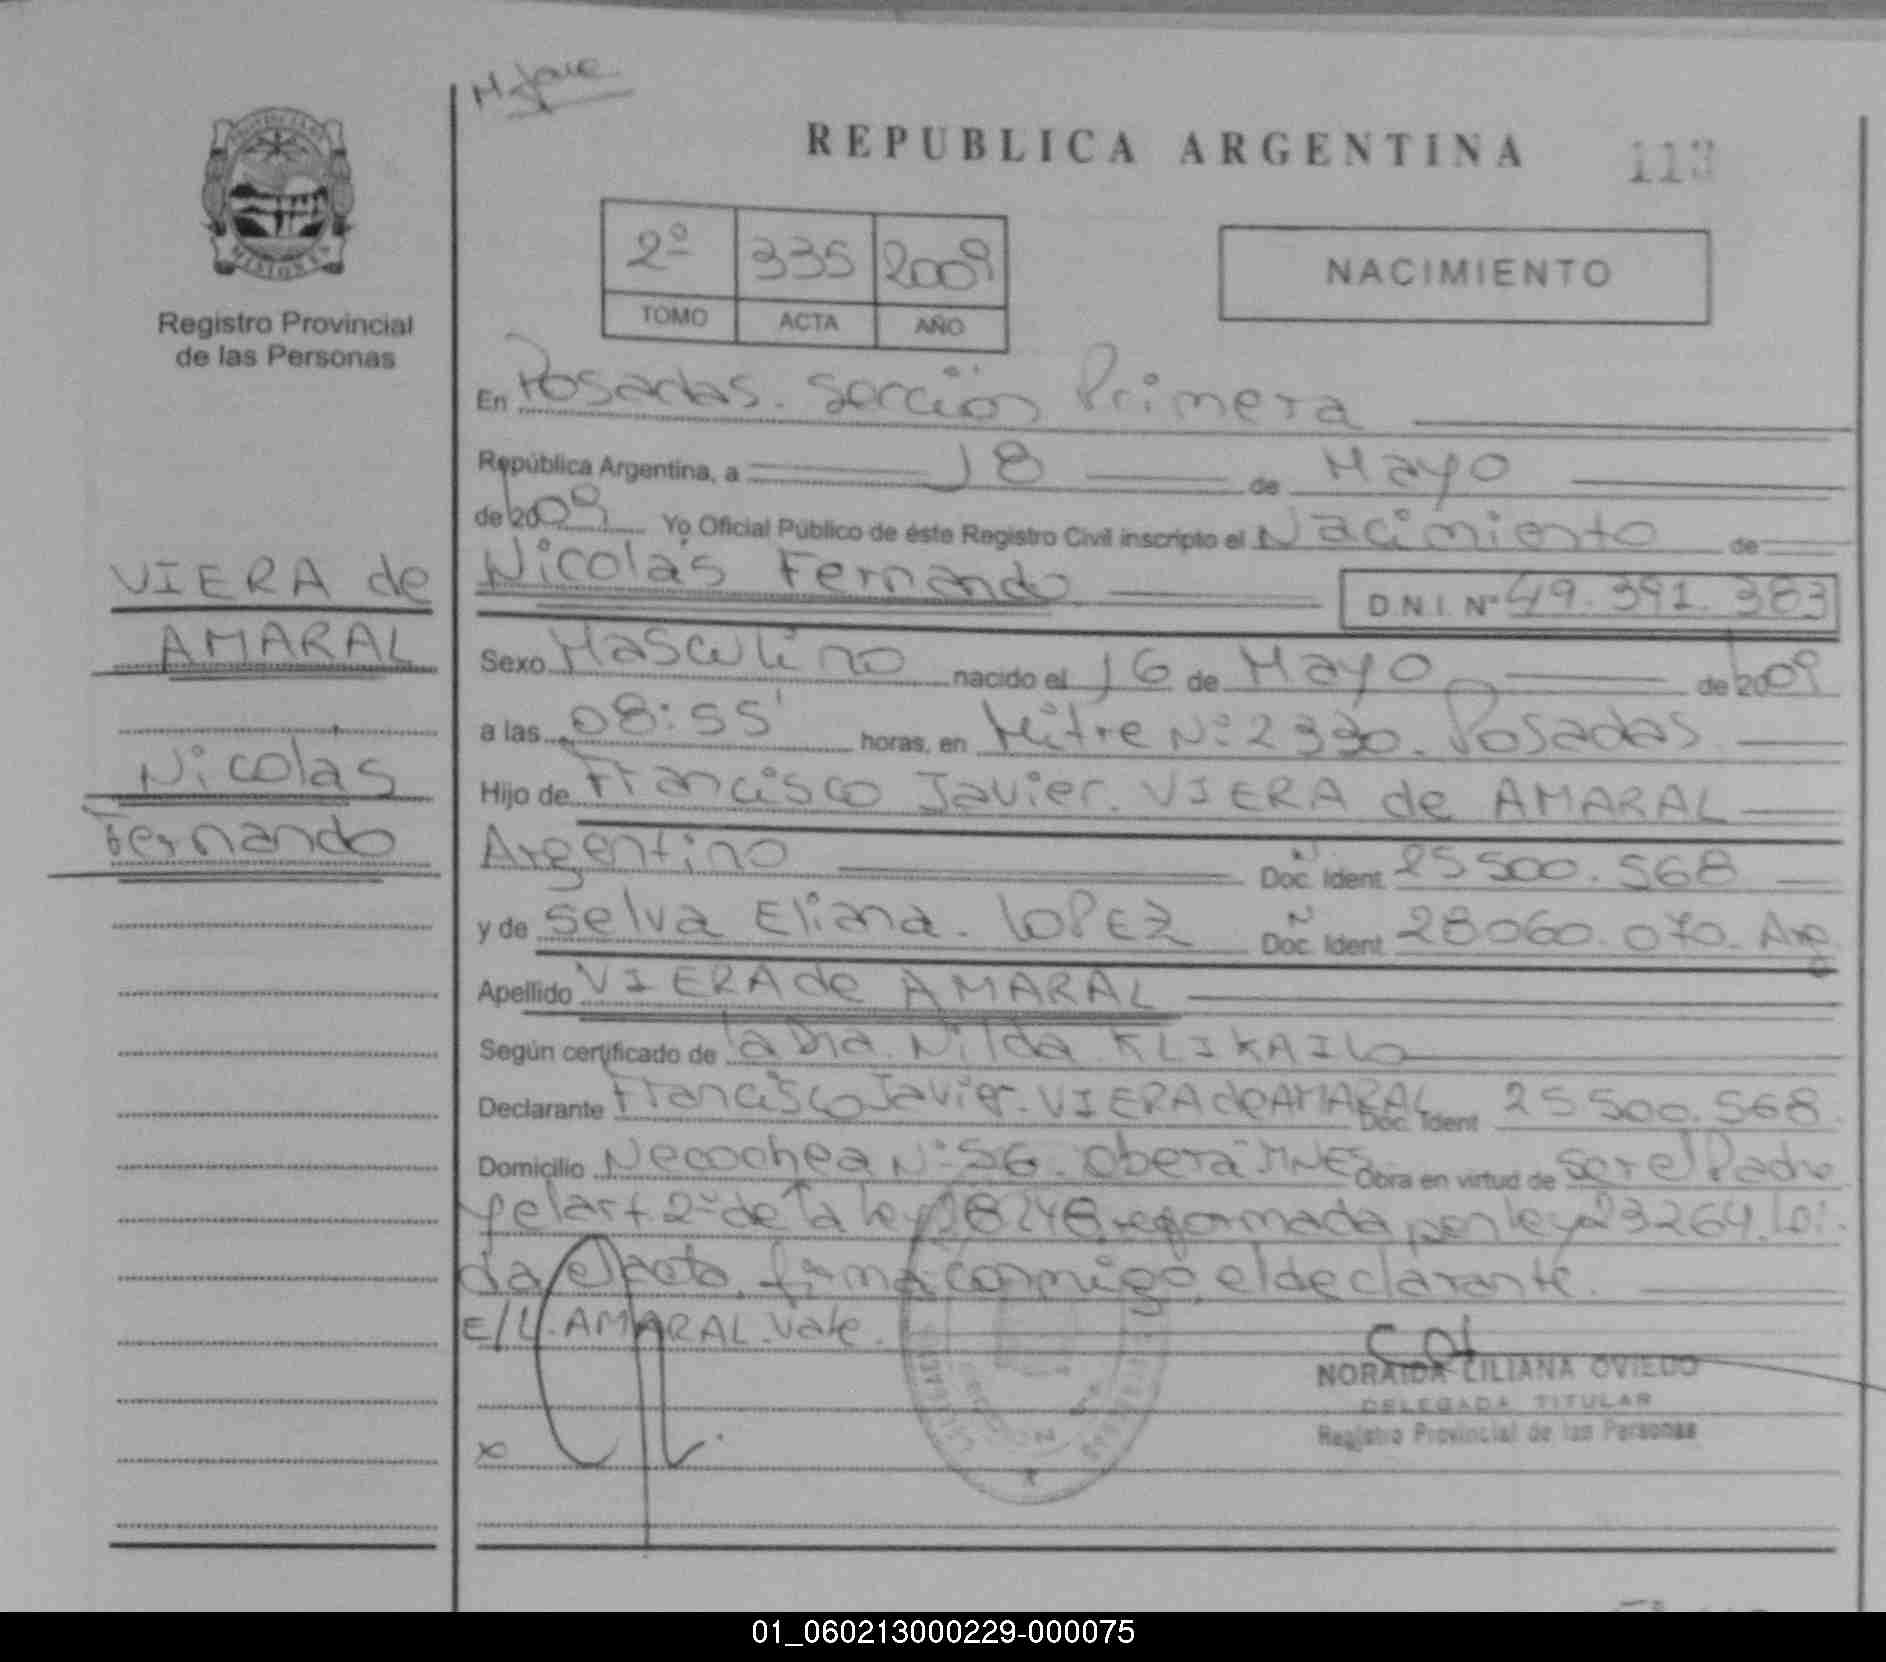 REPUBLICA ARGENTINA
113
PROVINCIA DE
MISIONES
Registro Provincial
de las Personas
2º 335 2009
TOMO ACTA AÑO
NACIMIENTO
En Posadas. Sección Primera
República Argentina, a 18 de Mayo
de 2009 Yo Oficial Público de éste Registro Civil inscripto el Nacimiento de
VIERA de
AMARAL
Nicolás
Fernando
Nicolás Fernando D.N.I. Nº 49.391.383
Sexo Masculino nacido el 16 de Mayo de 2009
a las 08:55' horas, en Mitre Nº 2330. Posadas
Hijo de Francisco Javier. VIERA de AMARAL
Argentino Doc. Ident. 25500.568
y de Selva Eliana. LOPEZ Doc. Ident. 28060.070. Arg
Apellido VIERA de AMARAL
Según certificado de la Dra. Nilda KLIKAILO
Declarante Francisco Javier. VIERA de AMARAL Doc. Ident 25500.568.
Domicilio Necochea Nº 56. Oberá MNES Obra en virtud de ser el Padre
y el art. 2º de la ley 18248 reformada por ley 23264. Leí-
da el acta, firma conmigo, el declarante.
E/L. AMARAL. Vale.
NORAIDA LILIANA OVIEDO
DELEGADA TITULAR
Registro Provincial de las Personas
x
01_060213000229-000075